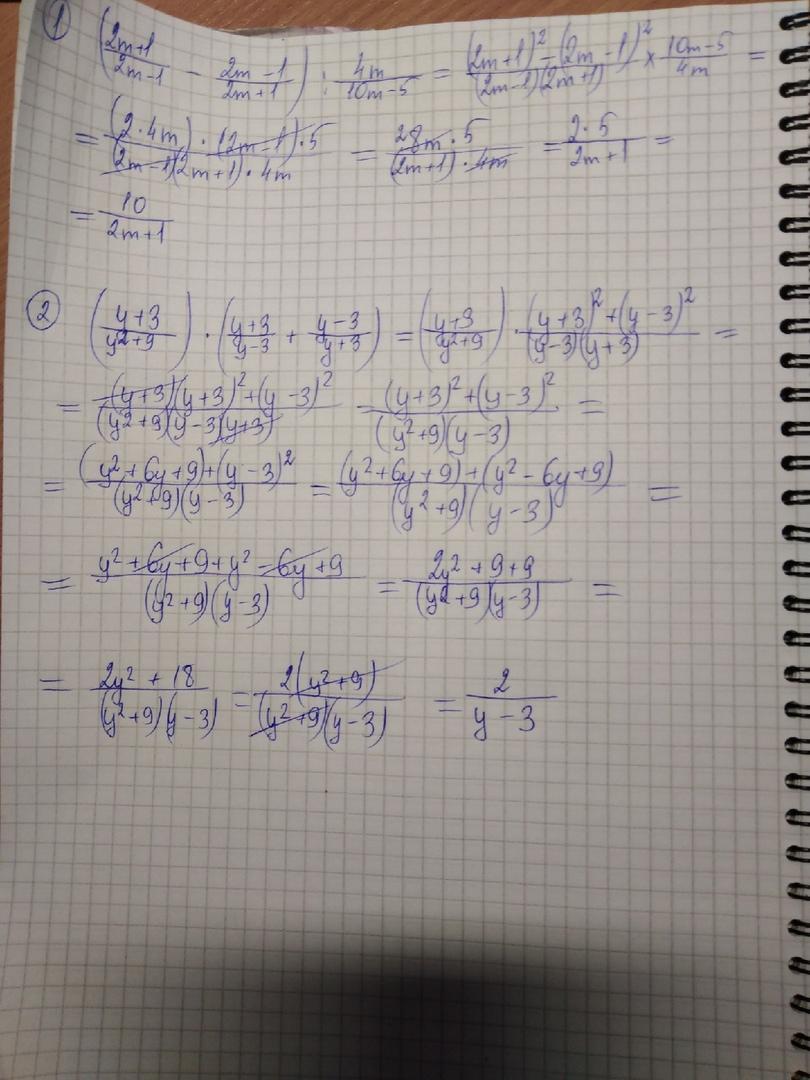 ① ((2m+1)/(2m-1) - (2m-1)/(2m+1)) : 4m/(10m-5) = ((2m+1)² - (2m-1)²)/((2m-1)(2m+1)) × (10m-5)/4m =
= ((2·4m)·(2m-1)·5)/((2m-1)(2m+1)·4m) = (28m·5)/((2m+1)·4m) = (2·5)/(2m+1) =
= 10/(2m+1)
② ((y+3)/(y²+9)) · ((y+3)/(y-3) + (y-3)/(y+3)) = ((y+3)/(y²+9)) · ((y+3)²+(y-3)²)/((y-3)(y+3)) =
= ((y+3)(y+3)²+(y-3)²)/((y²+9)(y-3)(y+3)) = ((y+3)²+(y-3)²)/((y²+9)(y-3)) =
= ((y²+6y+9)+(y-3)²)/((y²+9)(y-3)) = ((y²+6y+9)+(y²-6y+9))/((y²+9)(y-3)) =
= (y²+6y+9+y²-6y+9)/((y²+9)(y-3)) = (2y²+9+9)/((y²+9)(y-3)) =
= (2y²+18)/((y²+9)(y-3)) = (2(y²+9))/((y²+9)(y-3)) = 2/(y-3)